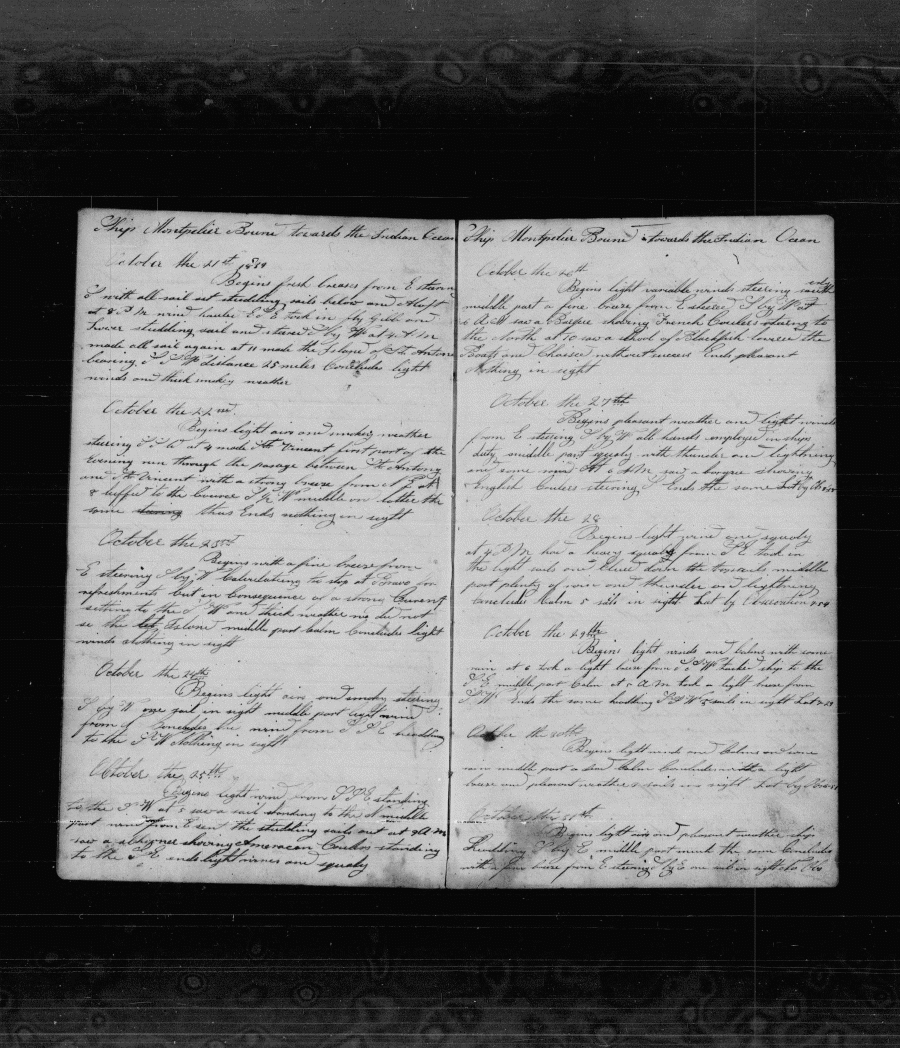 Ship Montpelier Bound towards the Indian Ocean
October the 21st
Begins fresh breses from E steering
S with all sail set studding sails below and Aloft
at 8 P M wind hauled E S E took in fly gibb and
lower studding sail and steered S by W at 4 A M
made all sail again at 11 made the Island of St Antone
bearing S S W distance 25 miles Concludes light
winds and thick smokey weather
October the 22nd
Begins light airs and smokey weather
steering S S W at 4 made St Vincent first part of the
Evening run through the pasage between St Antony
and St Vincent with a strong breeze from N E at
8 luffed to the Course S by W middle and latter the
same thus Ends nothing in sight
October the 23rd
Begins with a fine breeze from
E steering S by W Calculating to stop at Bravo for
refreshments but in Consequence of a strong Current
setting to the S W and thick weather we did not
se the Island middle part Calm Concludes light
winds Nothing in sight
October the 24th
Begins light airs and smokey steering
S by W one sail in sight middle part light wind
from Concludes the wind from S S E heading
to the S W Nothing in sight
October the 25th
Begins light wind from S S E standing
to the S W at 5 saw a sail standing to the N middle
part wind from E sent the studding sails out at 9 A M
saw a showing American Coulers standing
to the S E ends light airs and squaly
Ship Montpelier Bound towards the Indian Ocean
October the 26th
Begins light variable winds steering
middle part a fine breeze from E steered S by W at
6 A M saw a Barque showing French Coulers
the North at 10 saw a school of Blackfish lowered the
Boats and Chaised without success Ends pleasant
Nothing in sight
October the 27th
Begins pleasant weather and light winds
from E steering S by W all hands employed in ships
duty middle part squaly with thunder and lightning
and some wind At 6 P M saw a showing
English Coulers steering S Ends the same Lat by Ob
October the 28
Begins light wind and squaly
at 4 P M had a heavy squaly from S E took in
the light sails and Clued down the topsails middle
part plenty of rain and thunder and lightning
Concludes Calm 5 sails in sight Lat by Observation
October the 29th
Begins light winds and Calms with some
rain at 6 took a light breeze from S S W Tacked ship to the
S E middle part Calm at 5 A M took a light breeze from
S W Ends the same heading sails in sight Lat
October the 30th
Begins light winds and Calms and some
rain middle part a dead Calm Concludes with a light
breese and pleasant weather sails in sight Lat by
October the 31st
Begins light airs and pleasant weather ship
Heading S by E middle part much the same Concludes
with a fine breese from E steering S by E one sail in sight